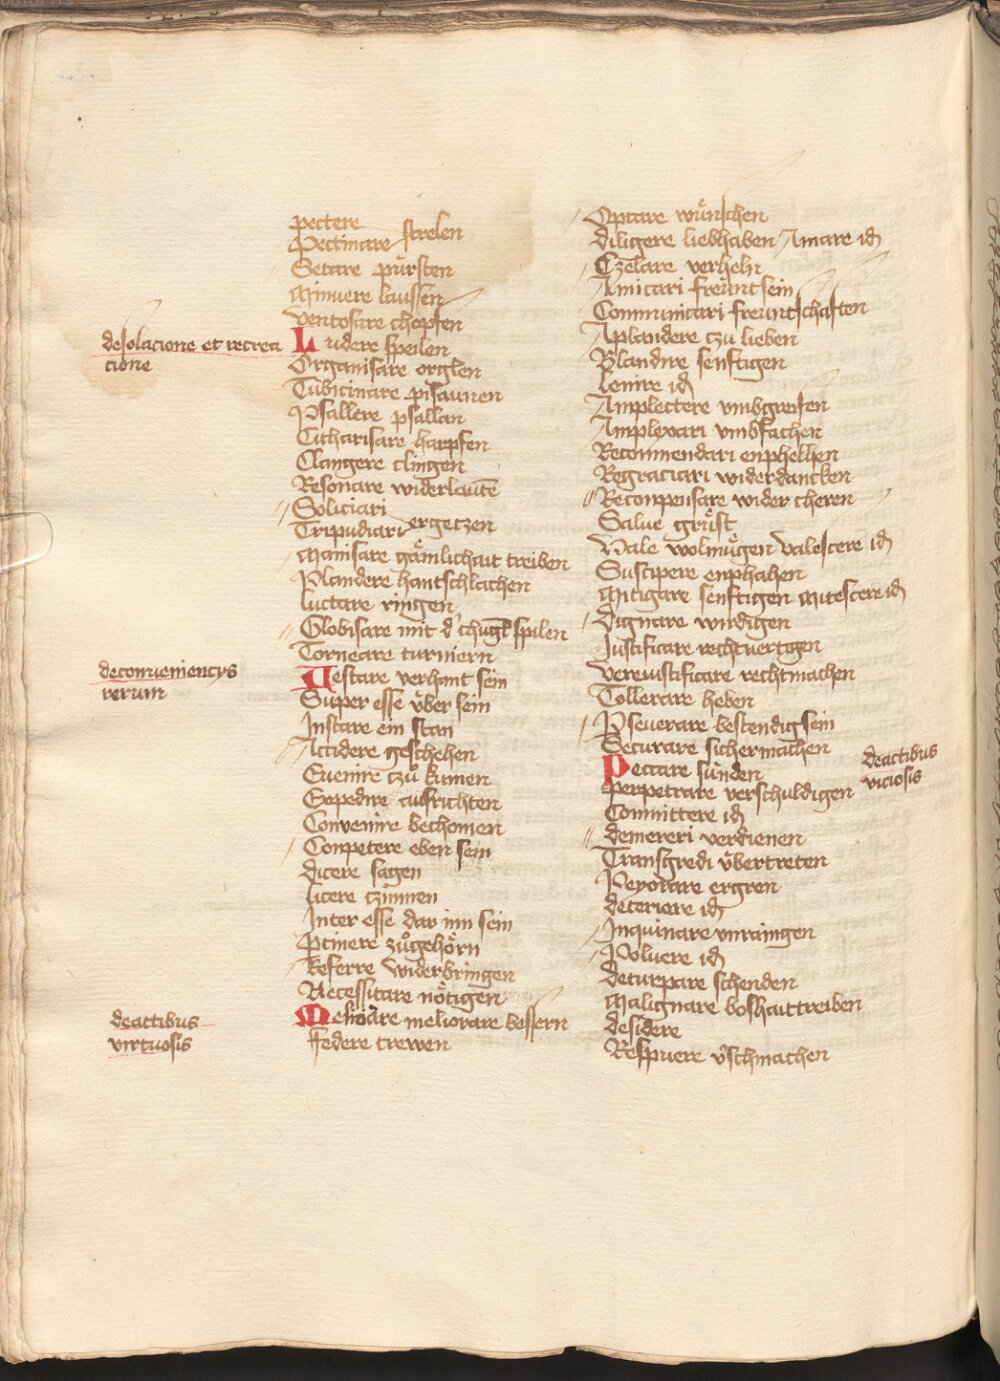 pectere
Pectinare strelen
Setare pürsten
Minuere laussen
Ventosare chopfen
de solacione et recrea
cione
Ludere speilen
Organisare orglen
Tubicinare pisaunen
Psallere psallan
Citharisare harpfen
Clangere clingen
Resonare widerlautē
Soliciari
Tripudiari ergetzen
Manisare gämlichait treiben
Plandere hantschlachen
luctare ringen
Globisare mit d' chugl spilen
Torneare turniern
de conueniencys
rerum
Restare verhant sein
Super esse über sein
Instare ein stan
Accidere geschehen
Euenire czů kumen
Expedire ausrichten
Convenire bechomen
Conpetere eben sein
dicere sagen
licere czimmen
Inter esse dar inn sein
Ptinere zůgehörn
Referre widerbringen
Necessitare nötigen
de actibus
virtuosis
meliorare bessern
Federe trewen
Optare wünschen
diligere liebhaben Amare id
Czelare verheln
Amicari freüntsein
Communicari freuntschaften
Aplandere czu lieben
Blandire senftigen
lenire id
Amplectere vmbgreifen
Amplexari vmbfachen
Recommendari enphelhen
Regraciari widerdancken
Recompensare wider cheren
Salue grüst
Vale wolmügen valescere id
Suscipere enphahen
Mitigare senftigen Mitescere id
dignare wirdigen
Justificare rechtuertigen
Vereiustificare rechtmachen
Tollerare heben
Pseuerare bestendig sein
Securare sichermachen
de actibus
viciosis
Peccare sünden
perpetrare verschuldigen
Committere id
demereri verdienen
Transgredi übertreten
Peyorare ergren
deteriore id
Inquinare vnraingen
Poluere id
deturpare schenden
Malignare boshaittreiben
desidere
Respuere v'schmachen